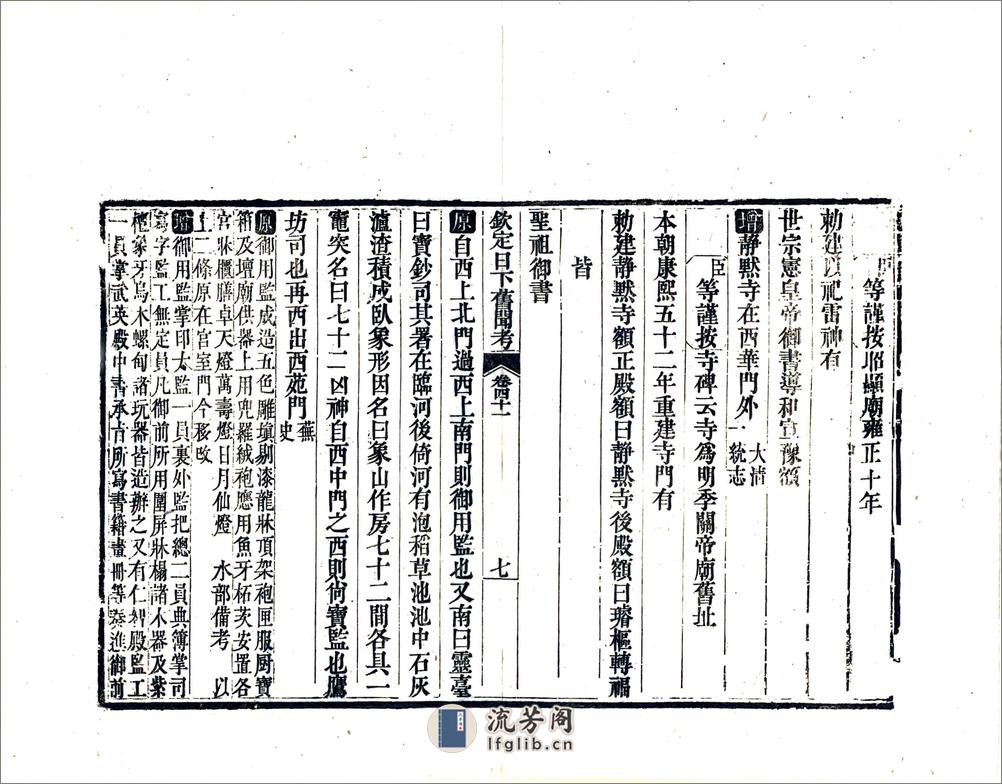 臣等謹按昭顯廟雍正十年
勅建以祀雷神有
世宗憲皇帝御書導和宣豫額
增靜默寺在西華門外大清一統志
臣等謹按寺碑云寺爲明季關帝廟舊址
本朝康熙五十二年重建寺門有
勅建靜默寺額正殿額曰靜默寺後殿額曰璿樞轉福
皆
聖祖御書
欽定日下舊聞考 卷四十一 七
原自西上北門過西上南門則御用監也又南曰靈臺
曰寶鈔司其署在臨河後倚河有泡稻草池池中石灰
瀘渣積成臥象形因名曰象山作房七十二間各具一
竈突名曰七十二凶神自西中門之西則尙寶監也鷹
坊司也再西出西苑門蕪史
原御用監成造五色雕塡剔漆龍牀頂架袍匣服厨寶
箱及壇廟供器上用兜羅絨袍應用魚牙柘茨安置各
宮牀櫃膳卓天燈萬壽燈日月仙燈 水部備考 以
上二條原在官室門今移改
增御用監掌印太監一員裏外監把總二員典簿掌司
寫字監工無定員凡御前所用圍屏牀榻諸木器及紫
檀象牙烏木螺甸諸玩器皆造辦之又有仁智殿監工
一員掌武英殿中書承旨所寫書籍畫冊等奏進御前
流芳阁
lfglib.cn